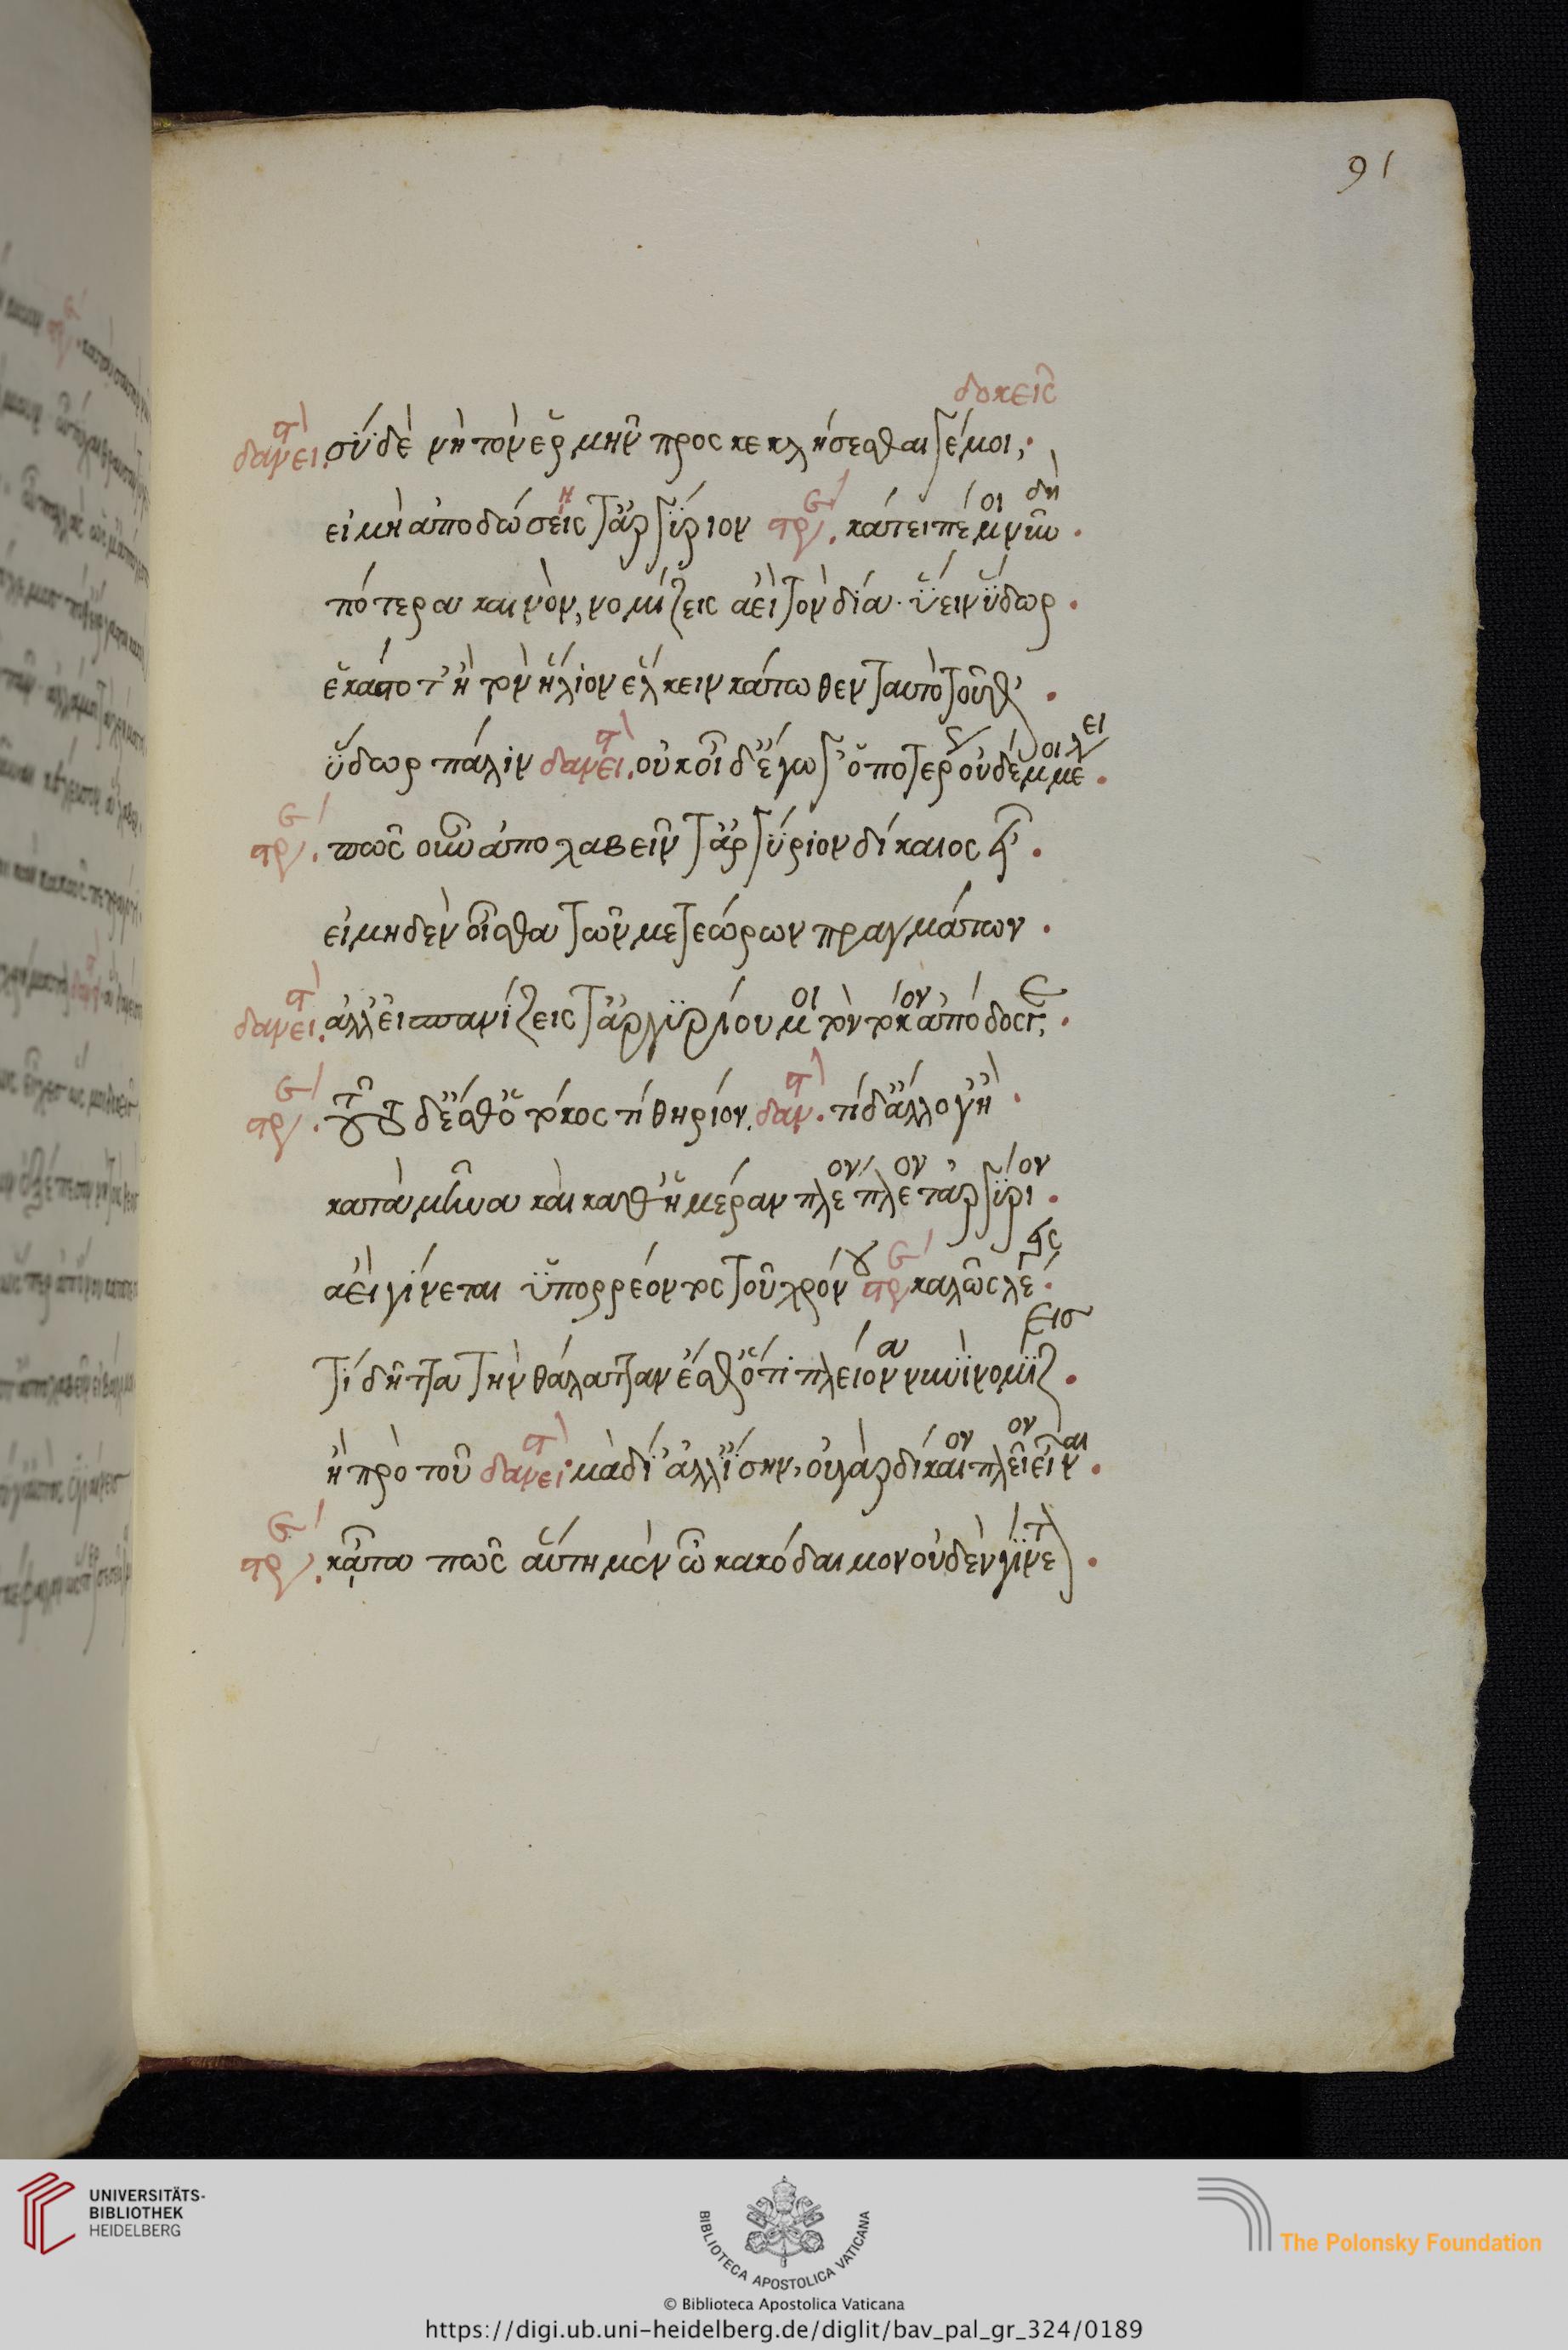 91
δοκεῖς
δανειστ. σὺ δὲ νὴ τὸν ἑρμῆν προσκεκλήσεσθαι γ' ἐμοί;
εἰ μὴ ἀποδώσεις τἀργύριον στρ. κάτειπέ μοι νῦν δή.
πότερα καινὸν, νομίζεις ἀεὶ τὸν δία ὕειν ὕδωρ.
ἑκάστοτ' ἢ τὸν ἥλιον ἕλκειν κάτωθεν ταὐτὸ τοῦθ'.
ὕδωρ πάλιν δανειστ. οὐκ οἶδ' ἔγωγ' ὁπότερον οὐδέ μοι μέλει.
στρ. πῶς οὖν ἀπολαβεῖν τἀργύριον δίκαιος εἶ.
εἰ μηδὲν οἶσθα τῶν μετεώρων πραγμάτων.
δανειστ. ἀλλ' εἰ σπανίζεις τἀργυρίου μοι τὸν τόκον ἀπόδοτέ γε;
στρ. τοῦτο δ' ἔσθ' ὁ τόκος τί θηρίον. δανστ. τί δ' ἄλλό γ' ἢ.
κατὰ μῆνα καὶ καθ' ἡμέραν πλέον πλέον τἀργύριον.
ἀεὶ γίνεται ὑπορρέοντος τοῦ χρόνου στρ καλῶς λέγεις.
τί δῆτα τὴν θάλατταν ἔσθ' ὅτι πλείονα νυνὶ νομίζεις.
ἢ πρὸ τοῦ δανειστ. μὰ δί' ἀλλ' ἴσην, οὐ γὰρ δίκαιον πλεῖον εἶναι.
στρ. κᾆτα πῶς αὕτη μὲν ὦ κακόδαιμον οὐδὲν γίνετ.
UNIVERSITÄTS-
BIBLIOTHEK
HEIDELBERG
BIBLIOTECA APOSTOLICA VATICANA
The Polonsky Foundation
© Biblioteca Apostolica Vaticana
https://digi.ub.uni-heidelberg.de/diglit/bav_pal_gr_324/0189